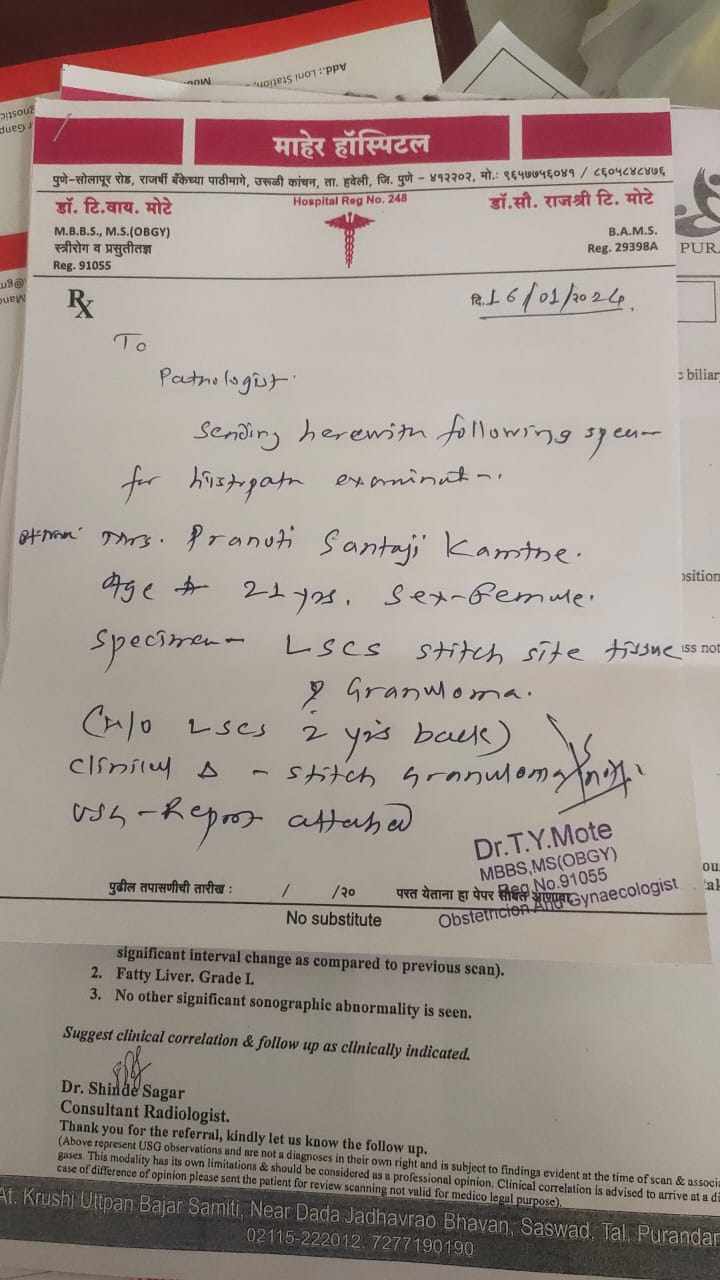 Add.: Loni Station,
माहेर हॉस्पिटल
पुणे-सोलापूर रोड, राजर्षी बँकेच्या पाठीमागे, उरूळी कांचन, ता. हवेली, जि. पुणे - ४१२२०२, मो.: ९६५७७५६०४१ / ८६०५४८४५७६
डॉ. टि.वाय. मोटे
M.B.B.S., M.S.(OBGY)
स्त्रीरोग व प्रसुतीतज्ञ
Reg. 91055
Hospital Reg No. 248
डॉ.सौ. राजश्री टि. मोटे
B.A.M.S.
Reg. 29398A
Rx
दि. 16/01/२०24.
To
Pathologist.
Sending herewith following
for histopath
Mrs. Pranoti Santaji Kamthe.
Age 21 yrs. Sex-Female.
Specimen - LSCS stitch site tissue
? Granuloma.
(H/o LSCS 2 yrs back)
Clinical Δ - stitch Granuloma
USG - Report attached
Dr.T.Y.Mote
MBBS,MS(OBGY)
Reg No.91055
Obstetricion And Gynaecologist
पुढील तपासणीची तारीख : / /२० परत येताना हा पेपर सोबत आणावा.
No substitute
PUR
biliar
osition
ss not
significant interval change as compared to previous scan).
2. Fatty Liver. Grade I.
3. No other significant sonographic abnormality is seen.
Suggest clinical correlation & follow up as clinically indicated.
Dr. Shinde Sagar
Consultant Radiologist.
Thank you for the referral, kindly let us know the follow up.
(Above represent USG observations and are not a diagnoses in their own right and is subject to findings evident at the time of scan & associ
gases. This modality has its own limitations & should be considered as a professional opinion. Clinical correlation is advised to arrive at a di
case of difference of opinion please sent the patient for review scanning not valid for medico legal purpose).
At. Krushi Uttpan Bajar Samiti, Near Dada Jadhavrao Bhavan, Saswad, Tal. Purandar
02115-222012, 7277190190